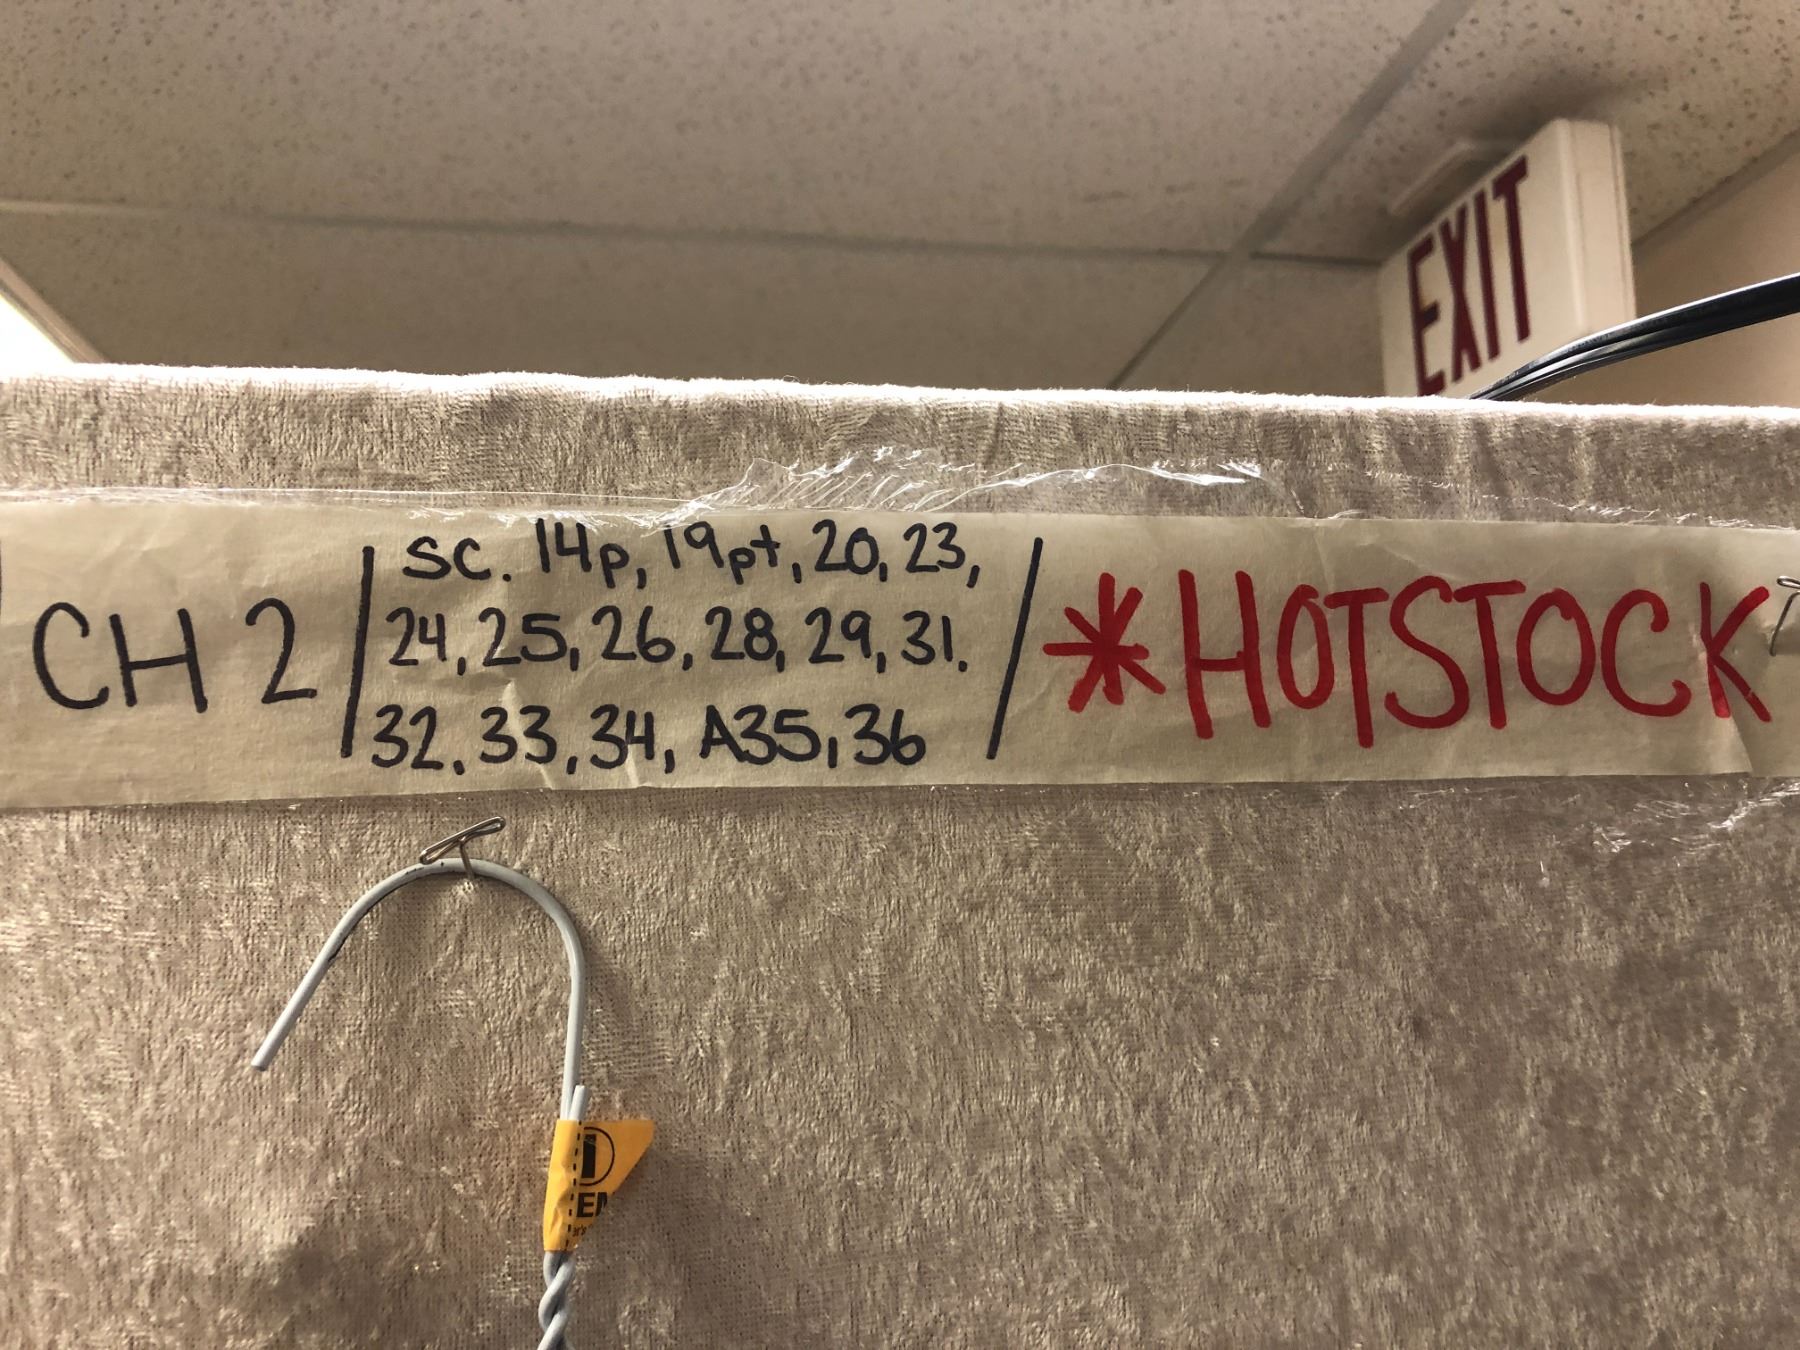 EXIT
CH 2 / sc. 14p, 19pt, 20, 23, / *HOTSTOCK
24, 25, 26, 28, 29, 31.
32, 33, 34, A35, 36